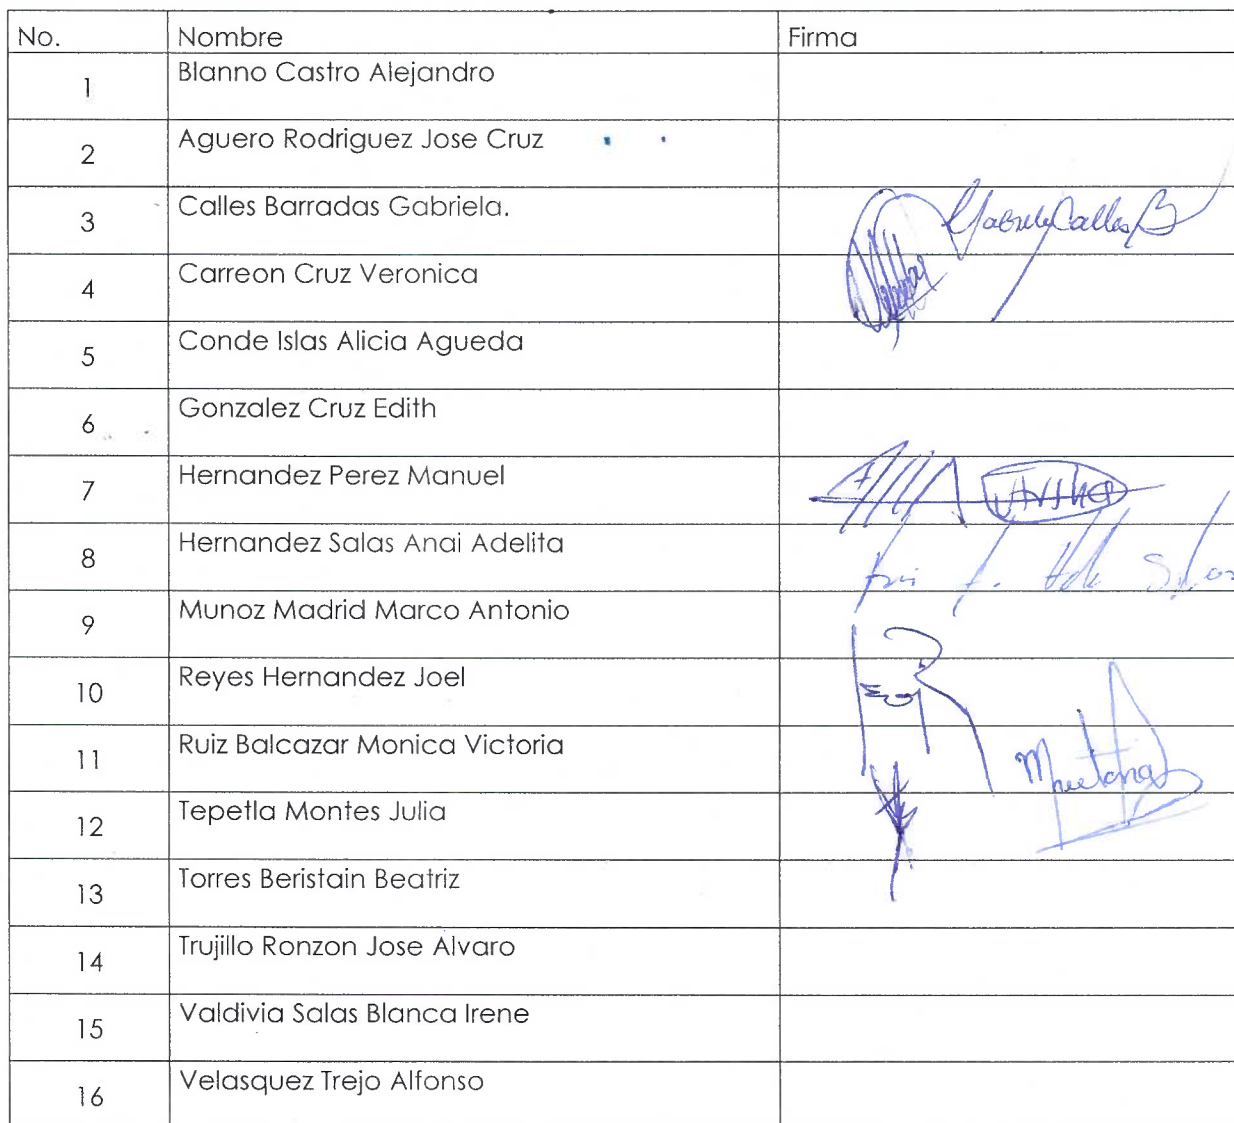 No. Nombre Firma
1 Blanno Castro Alejandro
2 Aguero Rodriguez Jose Cruz
3 Calles Barradas Gabriela. Gabriela Calles B
4 Carreon Cruz Veronica
5 Conde Islas Alicia Agueda
6 Gonzalez Cruz Edith
7 Hernandez Perez Manuel
8 Hernandez Salas Anai Adelita
9 Munoz Madrid Marco Antonio
10 Reyes Hernandez Joel
11 Ruiz Balcazar Monica Victoria
12 Tepetla Montes Julia
13 Torres Beristain Beatriz
14 Trujillo Ronzon Jose Alvaro
15 Valdivia Salas Blanca Irene
16 Velasquez Trejo Alfonso